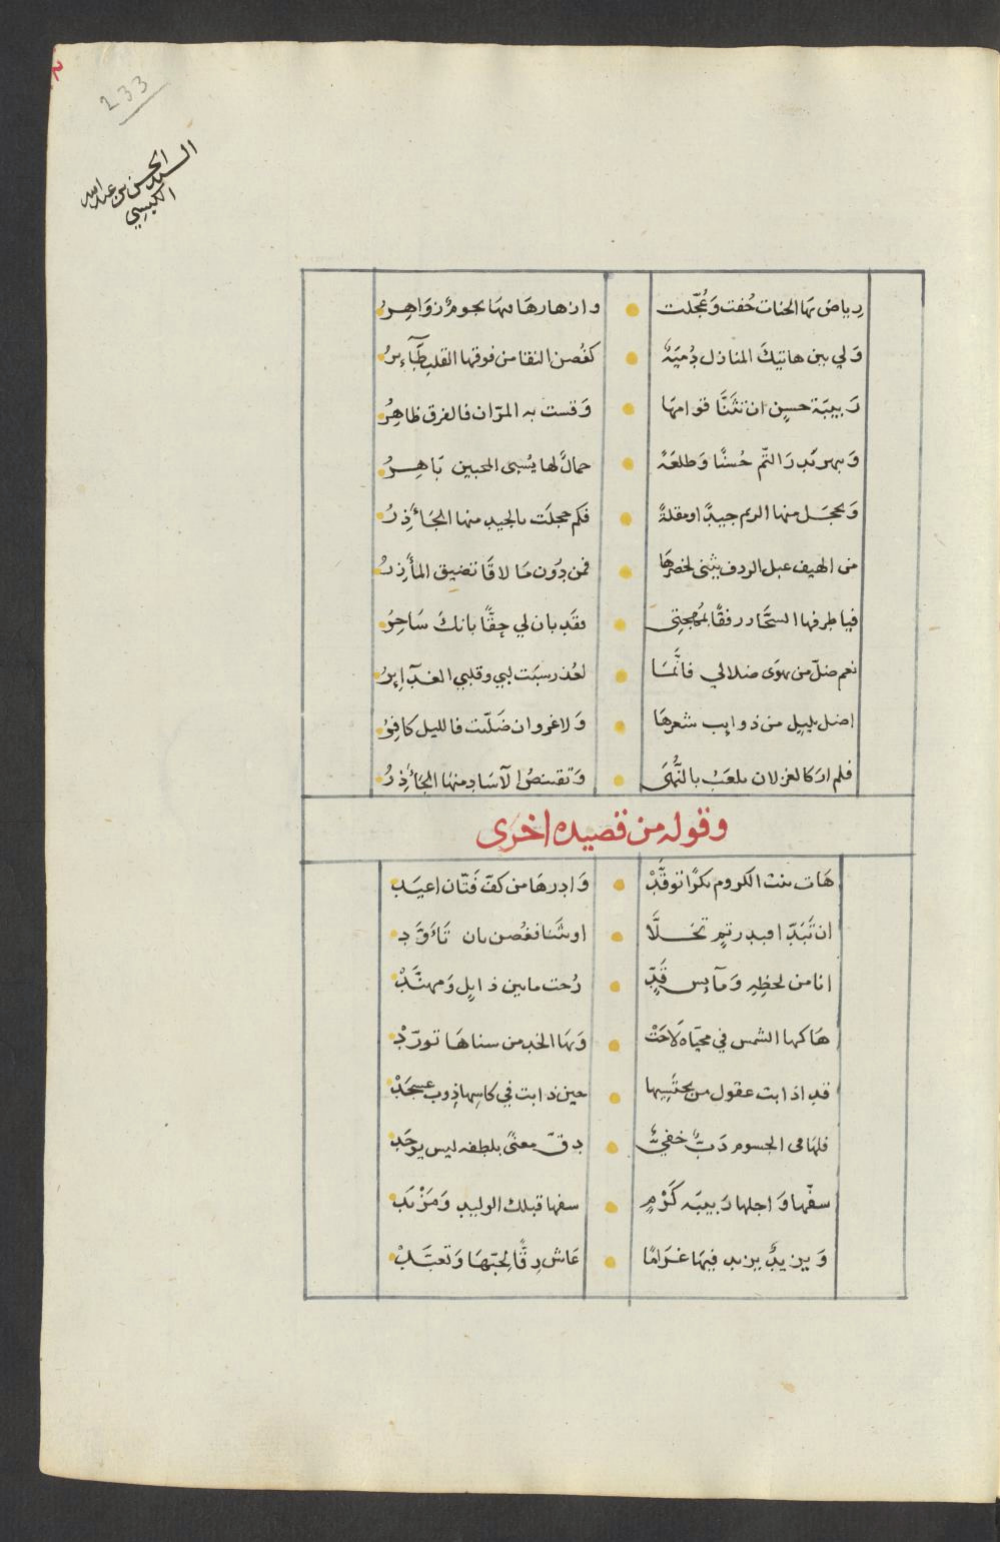 233
السيد الحسن بن عبد الله
الكبسي
رياض بها الجنات حُفت وَعُجّلت • وازهارهَا فيهَا نجومٌ زوَاهِرُ
وَلي بين هاتيكَ المنازل دُميَةٌ • كغُصن النقا من فوقها القلب طَآءِرُ
رَبيبَة حسنٍ ان تثَنَّا قوامهَا • وَقست به المرّان فالفرق ظاهِرُ
وَيبهر بَدرَ التّم حُسنًا وَطلعَةً • جمالٌ لها يَسبى المحبين بَاهِرُ
وَيخجَل منها الريم جيدًا ومقلةً • فكم خجلَت بالجيد منها الجَأذِرُ
من الهيف عبل الردف يثنى لخصرهَا • فمن دُون مَا لاقَا تضيق المأزرُ
فيا طرفها السحَّار رفقًا بمُهجتى • فقَد بان لي حِقًّا بانكَ سَاحِرُ
نعم ضلّ من يهوَى ضلالي فانَّمَا • لعُذر سبَت لبي وقلبي الغدَآئِرُ
اضل بليل من ذوايب شعرهَا • وَلا غرو ان ضَلّت فالليل كافِرُ
فلم ارَ كالغزلان تلعَبُ بالنُّهَى • وَتقتنصُ الآسَاد منهَا الجَأذِرُ
وقوله من قصيده اخرى
هَات بنت الكروم بكرًا توقَّدْ • وَادِرهَا من كفّ فَتّان اغيَد
ان تَبَدّا فبدر تمٍ تجَلَّا • او تثَنا فغُصن بان تَأوَّد
انا من لحظِهِ وَمآيس قَدٍّ • رُحت مابين ذابلٍ وَمهنَّدْ
هَاكها الشمس في محيّاه لَاحَتْ • وَبهَا الخد من سناهَا تورّدْ
قد اذابت عقول من يحتَسِيها • حين ذابت في كاسِها ذوب عسجَدْ
فلهَا فى الجسوم دَبٌّ خفيٌّ • دقّ معنًى بلطفه ليس يوحَد
سفّها وَاجلها رَبيبَه كَرْمٍ • سفها قبلك الوليد وَمَزْيَد
وَيزيدٌ يزيد فيهَا غرَامًا • عَاش رِقًّا لحبّهَا وَتعبَّدْ